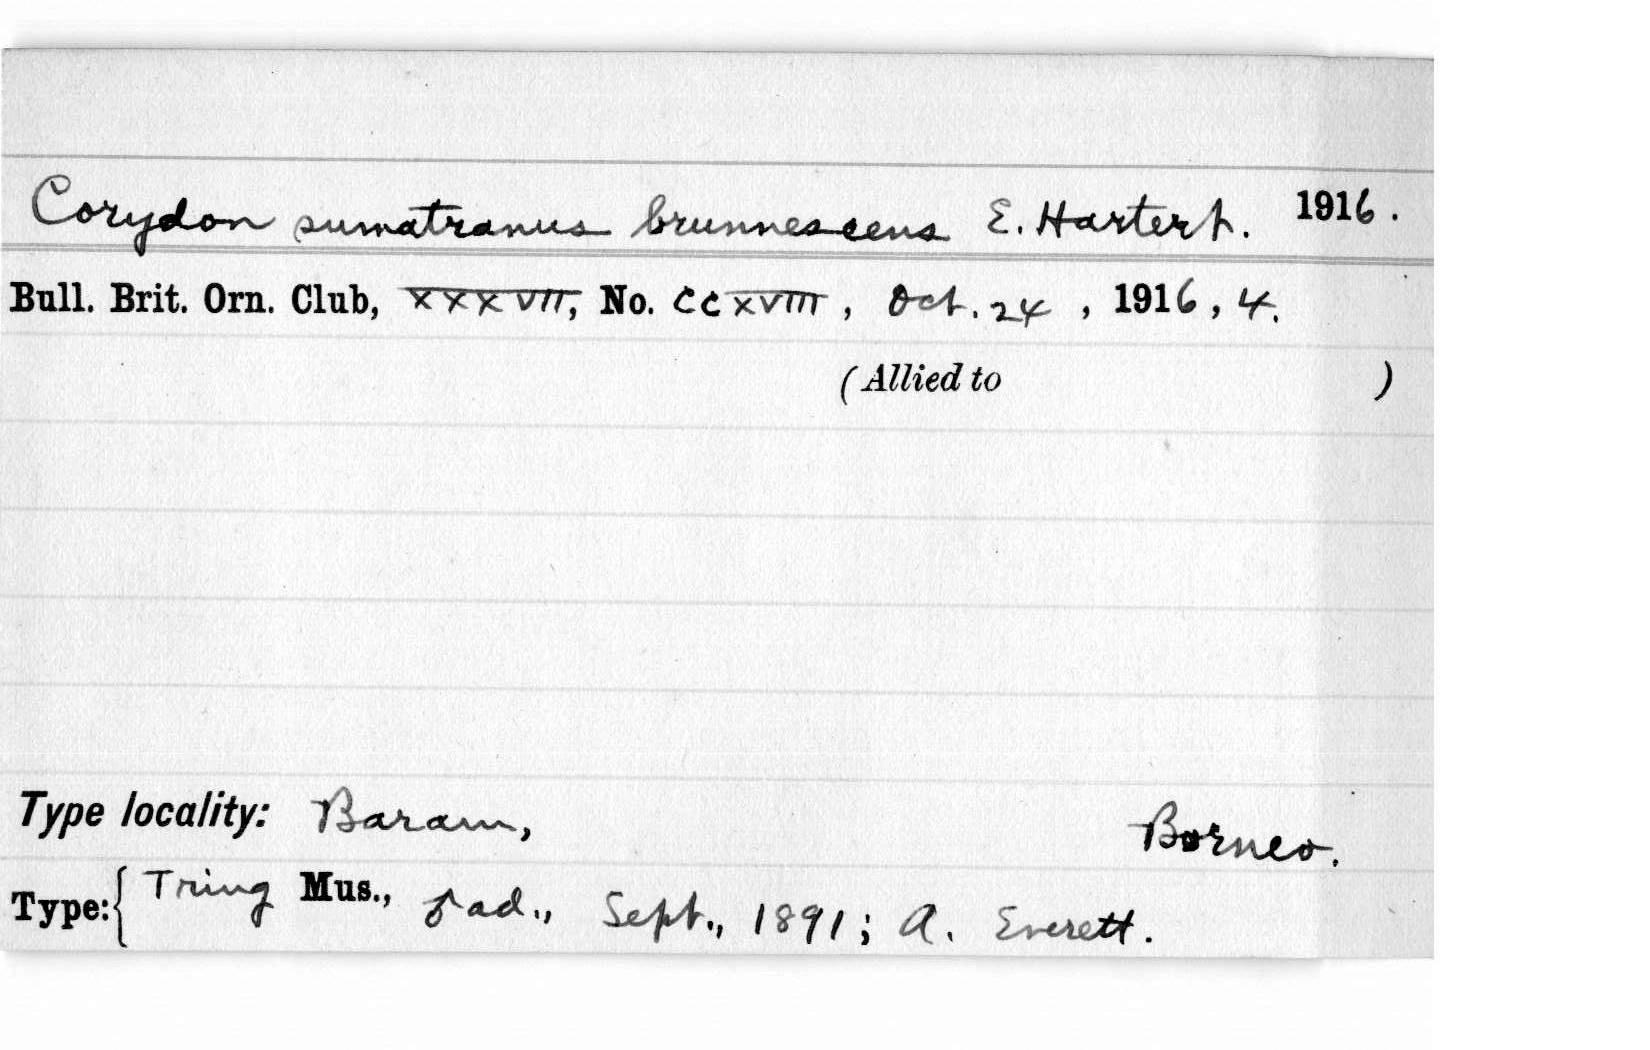 Corydon sumatranus brunnescens E. Hartert. 1916.
Bull. Brit. Orn. Club, XXXVII, No. CCXVIII, Oct. 24, 1916, 4.
(Allied to )
Type locality: Baram, Borneo.
Type: { Tring Mus., ♂ ad., Sept., 1891; A. Everett.